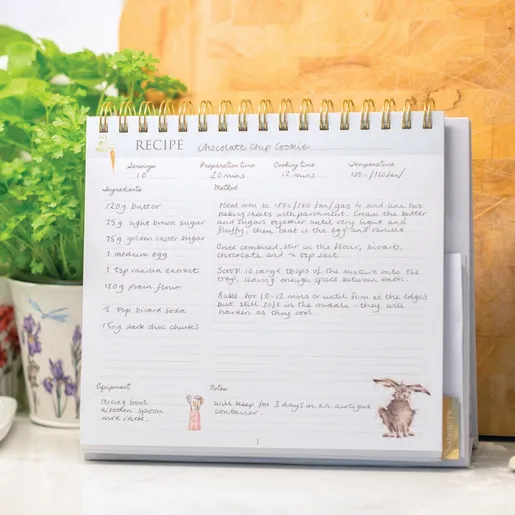 RECIPE Chocolate Chip Cookie
Servings Preparation time Cooking time Temperature
10 20 mins 12 mins 180c/160 fan/
Ingredients Method
120g butter
75g light brown sugar
75g golden caster sugar
1 medium egg
1 tsp vanilla extract
180g plain flour
½ tsp bicard soda
150g dark choc chunks
Heat oven to 180c/160 fan/gas 4 and line two
baking sheets with parchment. Cream the butter
and sugars together until very light and
fluffy, then beat in the egg and vanilla
Once combined, stir in the flour, bicarb,
chocolate and ¼ tsp salt
Scoop 10 large tbsps of the mixture onto the
trays, leaving enough space between each.
Bake for 10-12 mins or until firm at the edges
but still soft in the middle - they will
harden as they cool
Equipment
Mixing bowl
Wooden spoon
Notes
Will keep for 3 days in an airtight
container.
1